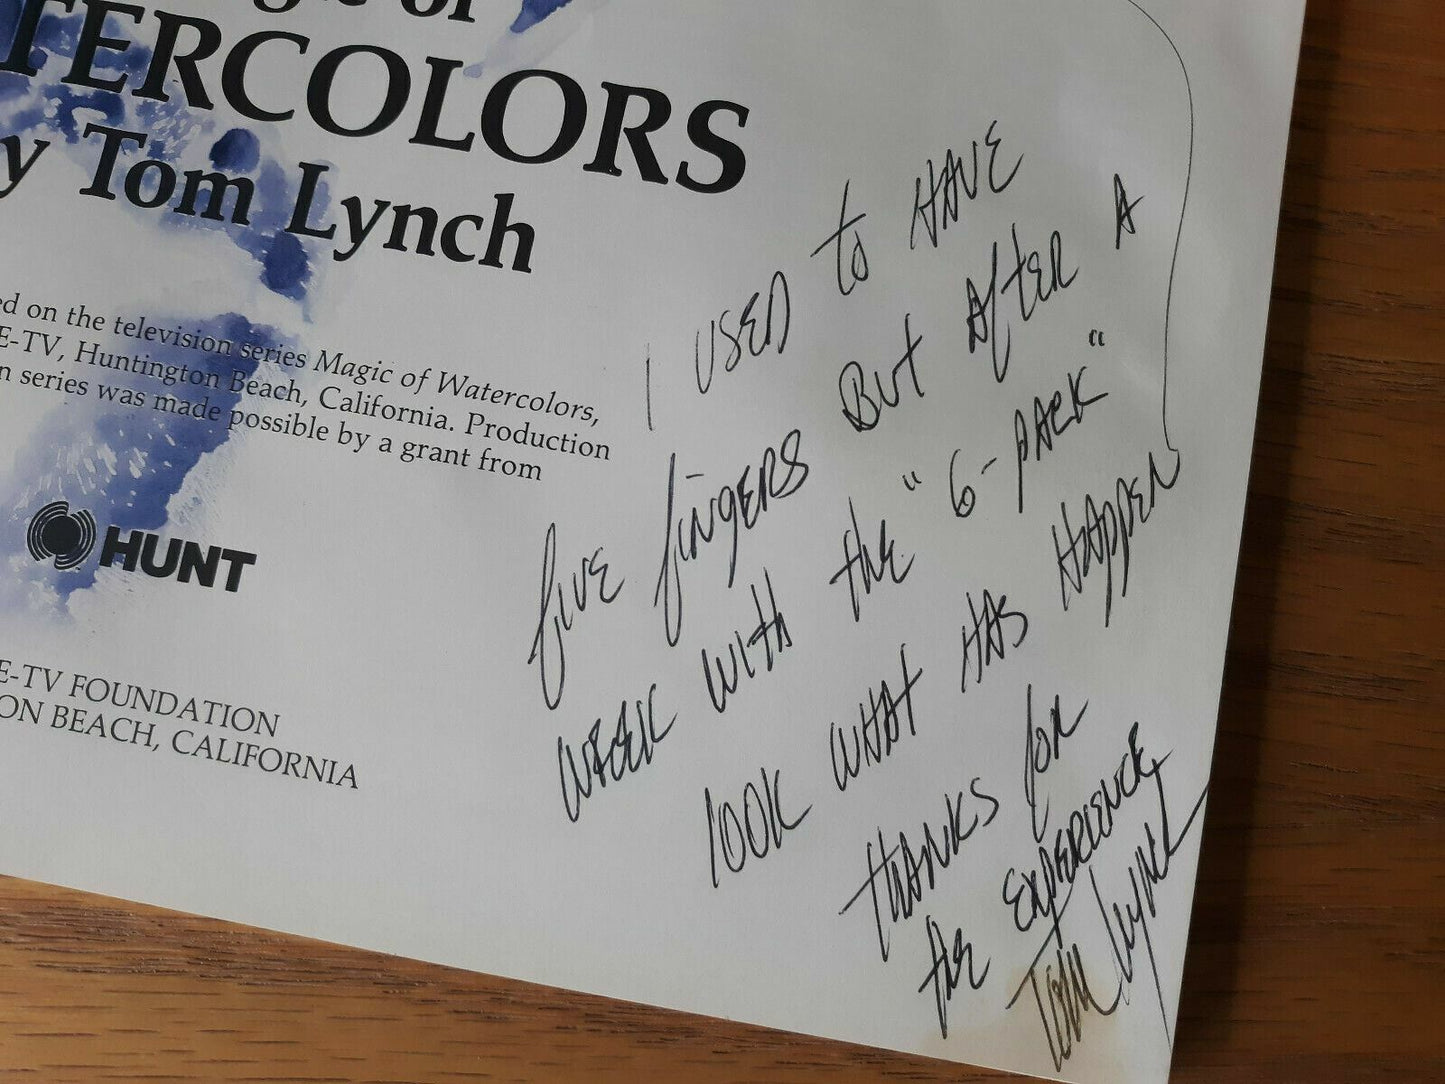 of
TERCOLORS
y Tom Lynch
ed on the television series Magic of Watercolors,
E-TV, Huntington Beach, California. Production
n series was made possible by a grant from
HUNT
E-TV FOUNDATION
ON BEACH, CALIFORNIA
I USED to HAVE
five fingers BUt After A
WEEK WITH the "6-PACK"
look WHAT HAS HAPPEN
tHANKS for
the EXPERIENCE,
Tom Lynch